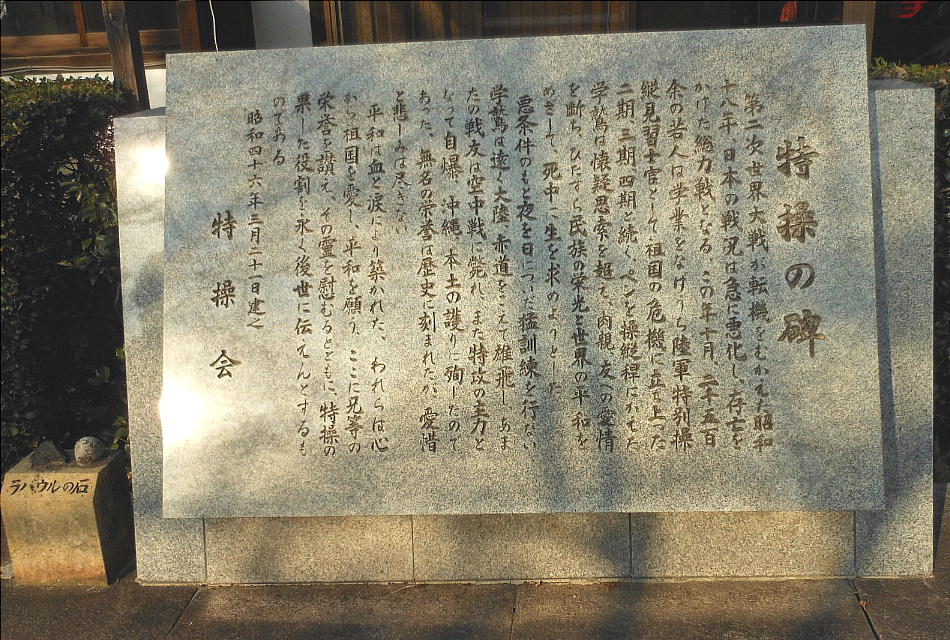 特操の碑
第二次世界大戦が転機をむかえた昭和
十八年、日本の戦況は急に悪化し、存亡を
かけた総力戦となる。この年十月、二千五百
余の若人は学業をなげうち陸軍特別操
縦見習士官として祖国の危機に立ち上った
二期、三期、四期と続く。ペンを操縦桿にかえた
学鷲は懐疑思索を超え、肉親、友への愛情
を断ち、ひたすら民族の栄光と世界の平和を
めざして、死中に生を求めようとした
悪条件のもと夜を日についだ猛訓練を行ない
学鷲は遠く大陸、赤道をこえて雄飛し、あま
たの戦友は空中戦に斃れ、また特攻の主力と
なって自爆、沖縄、本土の護りに殉じたので
あった。無名の栄誉は歴史に刻まれたが、愛惜
と悲しみは尽きない
平和は血と涙により築かれた。われらは心
から祖国を愛し、平和を願う。ここに兄等の
栄誉を讃え、その霊を慰むるとともに、特操の
果した役割を永く後世に伝えんとするも
のである
昭和四十六年三月二十一日建之
特操会
ラバウルの石